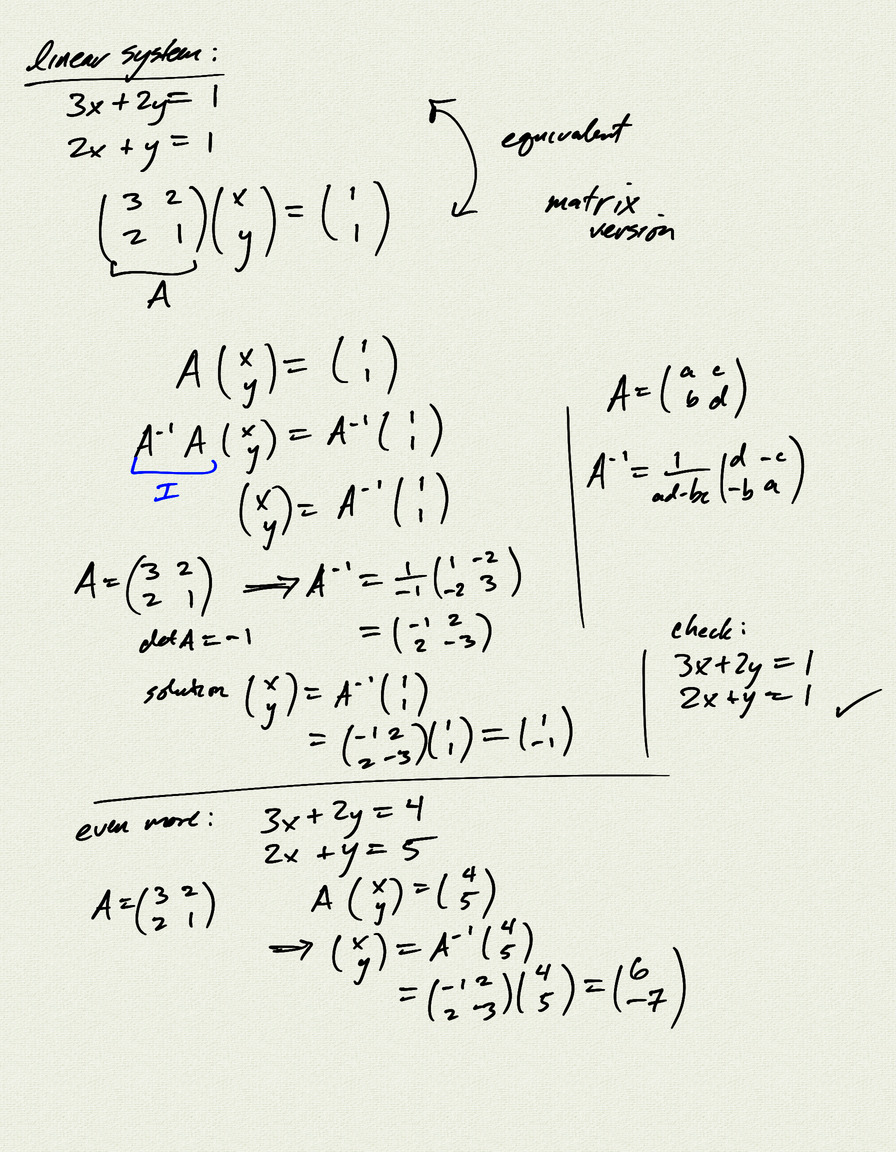 linear system:
3x + 2y = 1
2x + y = 1
equivalent
matrix
version
(3 2; 2 1)(x; y) = (1; 1)
A
A (x; y) = (1; 1)
A⁻¹ A (x; y) = A⁻¹ (1; 1)
I
(x; y) = A⁻¹ (1; 1)
A = (a c; b d)
A⁻¹ = 1/(ad-bc) (d -c; -b a)
A = (3 2; 2 1) ⟹ A⁻¹ = 1/-1 (1 -2; -2 3)
det A = -1
= (-1 2; 2 -3)
solution (x; y) = A⁻¹ (1; 1)
= (-1 2; 2 -3)(1; 1) = (1; -1)
check:
3x + 2y = 1
2x + y = 1 ✓
even more: 3x + 2y = 4
2x + y = 5
A = (3 2; 2 1)
A (x; y) = (4; 5)
⟹ (x; y) = A⁻¹ (4; 5)
= (-1 2; 2 -3)(4; 5) = (6; -7)